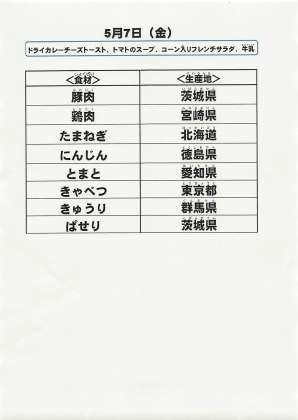 5月7日（金）
ドライカレーチーズトースト、トマトのスープ、コーン入りフレンチサラダ、牛乳
＜食材＞ ＜生産地＞
豚肉 茨城県
鶏肉 宮崎県
たまねぎ 北海道
にんじん 徳島県
とまと 愛知県
きゃべつ 東京都
きゅうり 群馬県
ぱせり 茨城県